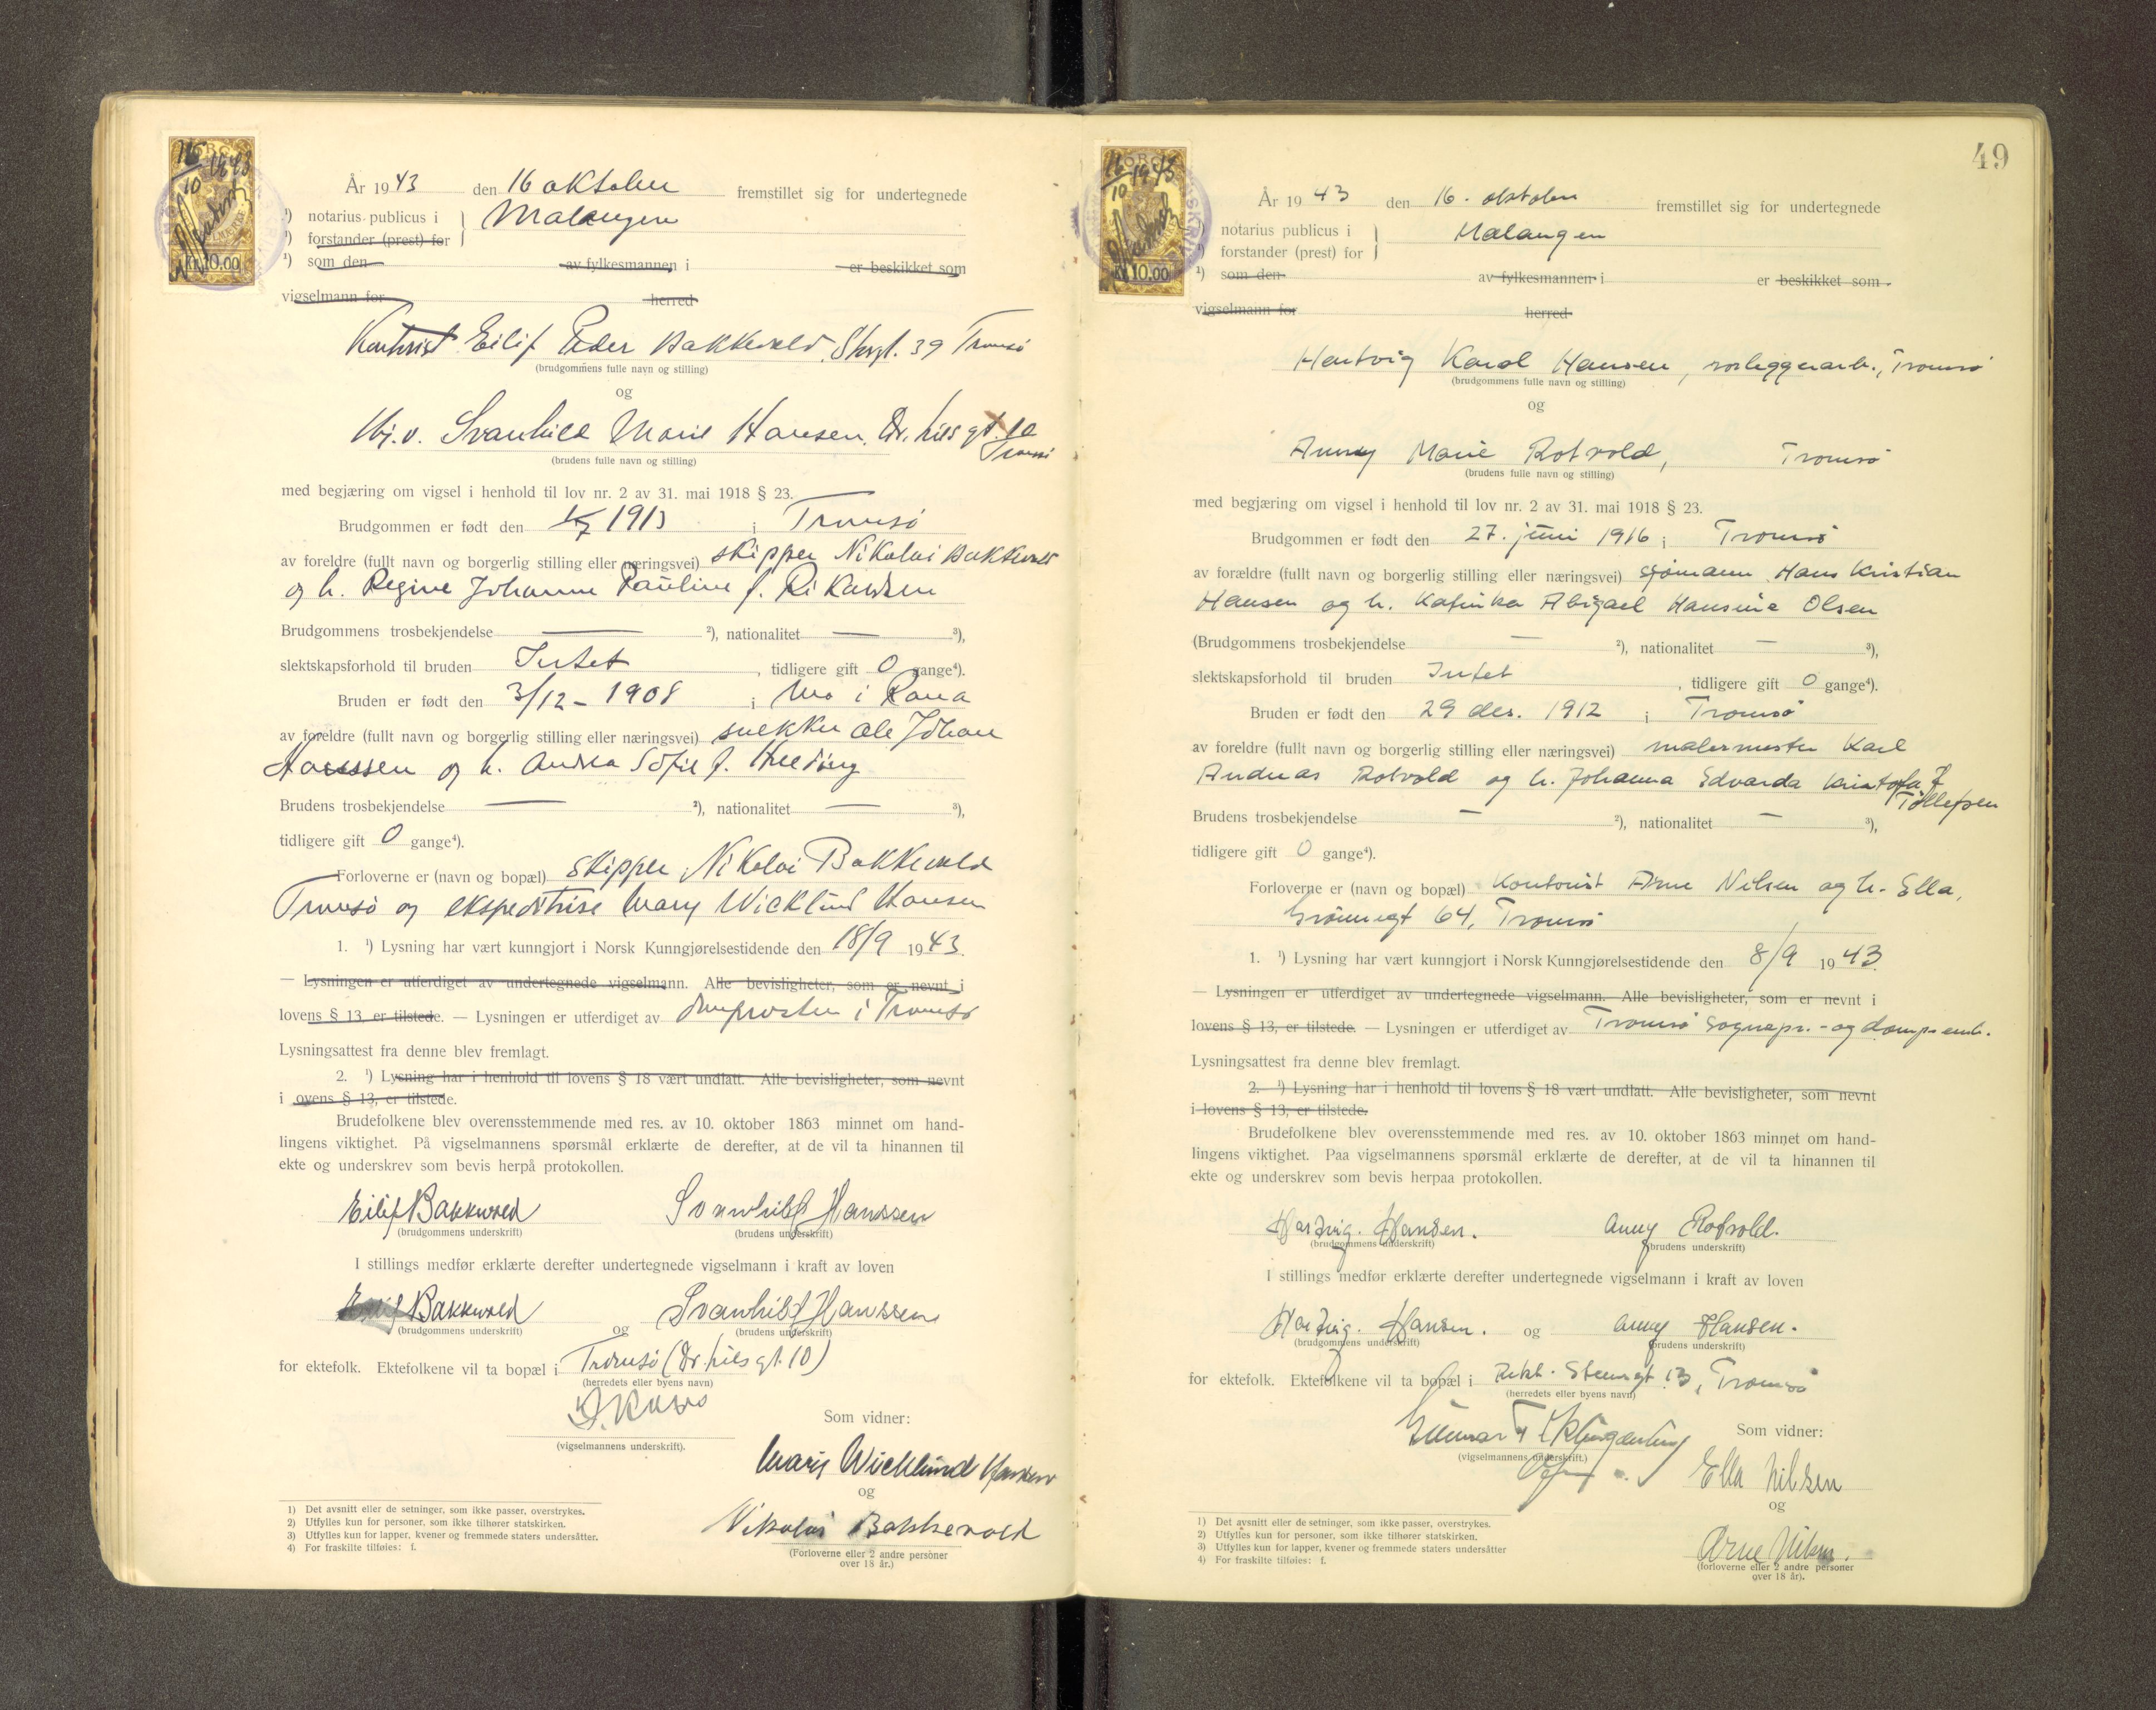 År 1943 den 16 oktober fremstillet sig for undertegnede
¹) notarius publicus i } Malangen
¹) forstander (prest) for
¹) som den av fylkesmannen i er beskikket som
vigselmann for herred
Kontorist Eilif Peder Bakkevold, Storgt. 39 Tromsø
(brudgommens fulle navn og stilling)
og
Svanhild Marie Hansen, Dr. gt. 10
Tromsø
(brudens fulle navn og stilling)
med begjæring om vigsel i henhold til lov nr. 2 av 31. mai 1918 § 23.
Brudgommen er født den 1913 i Tromsø
av foreldre (fullt navn og borgerlig stilling eller næringsvei) skipper Nikolai Bakkevold
og h. Regine Johanne Pauline f. Rikardsen
Brudgommens trosbekjendelse — ²), nationalitet — ³),
slektskapsforhold til bruden Intet, tidligere gift 0 gange⁴).
Bruden er født den 3/12 - 1908 i Mo i Rana
av foreldre (fullt navn og borgerlig stilling eller næringsvei) snekker Ole Johan
Hanssen og h. Andrea Sofie f.
Brudens trosbekjendelse — ²), nationalitet — ³),
tidligere gift 0 gange⁴).
Forloverne er (navn og bopæl) skipper Nikolai Bakkevold
Tromsø og ekspeditrise Mary Wicklund Hansen
1. ¹) Lysning har vært kunngjort i Norsk Kunngjørelsestidende den 18/9 1943.
— Lysningen er utferdiget av undertegnede vigselmann. Alle bevisligheter, som er nevnt i
lovens § 13, er tilstede. — Lysningen er utferdiget av domprosten i Tromsø
Lysningsattest fra denne blev fremlagt.
2. ¹) Lysning har i henhold til lovens § 18 vært undlatt. Alle bevisligheter, som nevnt
i ovens § 13, er tilstede.
Brudefolkene blev overensstemmende med res. av 10. oktober 1863 minnet om hand-
lingens viktighet. På vigselmannens spørsmål erklærte de derefter, at de vil ta hinannen til
ekte og underskrev som bevis herpå protokollen.
Eilif Bakkevold Svanhild Hanssen
(brudgommens underskrift) (brudens underskrift)
I stillings medfør erklærte derefter undertegnede vigselmann i kraft av loven
Eilif Bakkevold og Svanhild Hanssen
(brudgommens underskrift) (brudens underskrift)
for ektefolk. Ektefolkene vil ta bopæl i Tromsø (Dr. gt. 10)
(herredets eller byens navn)
(vigselmannens underskrift).
Som vidner:
Mary Wicklund Hansen
og
Nikolai Bakkevold
(Forloverne eller 2 andre personer
over 18 år.)
1) Det avsnitt eller de setninger, som ikke passer, overstrykes.
2) Utfylles kun for personer, som ikke tilhører statskirken.
3) Utfylles kun for lapper, kvener og fremmede staters undersåtter.
4) For fraskilte tilføies: f.
16/10 1943
NORGE
Kr. 10.00
49
År 1943 den 16. oktober fremstillet sig for undertegnede
notarius publicus i } Malangen
forstander (prest) for
¹) som den av fylkesmannen i er beskikket som
vigselmann for herred
Hartvig Karol Hansen, rørleggerarb., Tromsø
(brudgommens fulle navn og stilling)
og
Anny Marie Rotvold, Tromsø
(brudens fulle navn og stilling)
med begjæring om vigsel i henhold til lov nr. 2 av 31. mai 1918 § 23.
Brudgommen er født den 27. juni 1916 i Tromsø
av forældre (fullt navn og borgerlig stilling eller næringsvei) sjømann Hans Kristian
Hansen og h. Katinka Abigael Hansine Olsen
(Brudgommens trosbekjendelse — ²), nationalitet — ³),
slektskapsforhold til bruden Intet, tidligere gift 0 gange⁴).
Bruden er født den 29 des. 1912 i Tromsø
av foreldre (fullt navn og borgerlig stilling eller næringsvei) malermester Karl
Andreas Rotvold og h. Johanna Edvarda Kristofa f.
Tollefsen
Brudens trosbekjendelse — ²), nationalitet — ³),
tidligere gift 0 gange⁴).
Forloverne er (navn og bopæl) Kontorist Arne Nilsen og h. Ella,
Grønnegt 64, Tromsø
1. ¹) Lysning har vært kunngjort i Norsk Kunngjørelsestidende den 8/9 1943.
— Lysningen er utferdiget av undertegnede vigselmann. Alle bevisligheter, som er nevnt i
lovens § 13, er tilstede. — Lysningen er utferdiget av Tromsø Sognepr.- og domp. emb.
Lysningsattest fra denne blev fremlagt.
2. ¹) Lysning har i henhold til lovens § 18 vært undlatt. Alle bevisligheter, som nevnt
i lovens § 13, er tilstede.
Brudefolkene blev overensstemmende med res. av 10. oktober 1863 minnet om hand-
lingens viktighet. Paa vigselmannens spørsmål erklærte de derefter, at de vil ta hinannen til
ekte og underskrev som bevis herpaa protokollen.
Hartvig. Hansen. Anny Rotvold.
(brudgommens underskrift) (brudens underskrift)
I stillings medfør erklærte derefter undertegnede vigselmann i kraft av loven
Hartvig. Hansen. og Anny Hansen.
(brudgommens underskrift) (brudens underskrift)
for ektefolk. Ektefolkene vil ta bopæl i Rekt. Steengt 13, Tromsø
(herredets eller byens navn)
Gunnar
(vigselmannens underskrift.)
Som vidner:
Ella Nilsen
og
Arne Nilsen.
(forloverne eller 2 andre personer
over 18 år).
1) Det avsnitt eller de setninger, som ikke passer, overstrykes.
2) Utfylles kun for personer, som ikke tilhører statskirken.
3) Utfylles kun for lapper, kvener og fremmede staters undersåtter
4) For fraskilte tilføies: f.
16/10 1943
NORGE
Kr. 10.00